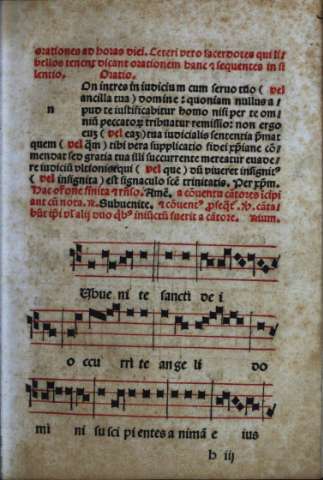 orationes ad horas diei. Ceteri vero sacerdotes qui li⸗
bellos tenent dicant orationem hanc ⁊ sequentes in si
lentio. Oratio.
On intres in iudicium cum seruo tuo ( vel
ancilla tua ) domine : quoniam nullus a⸗
n pud te iustificabitur homo nisi per te om⸗
niũ peccatoꝝ tribuatur remissio: non ergo
eum ( vel eam) tua iudicialis sententia p̃mat
quem ( vel quã) tibi vera supplicatio fidei xp̃iane cõ⸗
mendat sed gratia tua illi succurrente mereatur euade⸗
re iudiciũ vltionis: qui ( vel que ) dũ viueret insignit⁹
( vel insignita ) est signaculo scẽ trinitatis. Per xp̃m.
Hac or̃one finita ⁊ rñso. Amẽ. a cõuentu cãtores icipi
ant cũ nota. ℟. Subuenite.
Ubue ni te sancti de i
o ccu rri te an ge li do
mi ni su sci pi entes a nimã e ius
h iij